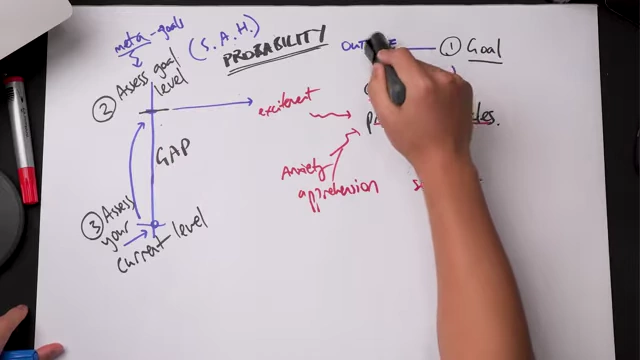 meta-goals
(S.A.H.)
PROBABILITY
① Goal
② Assess goal
level
excitement
GAP
Anxiety
apprehension
③ Assess
your
current level